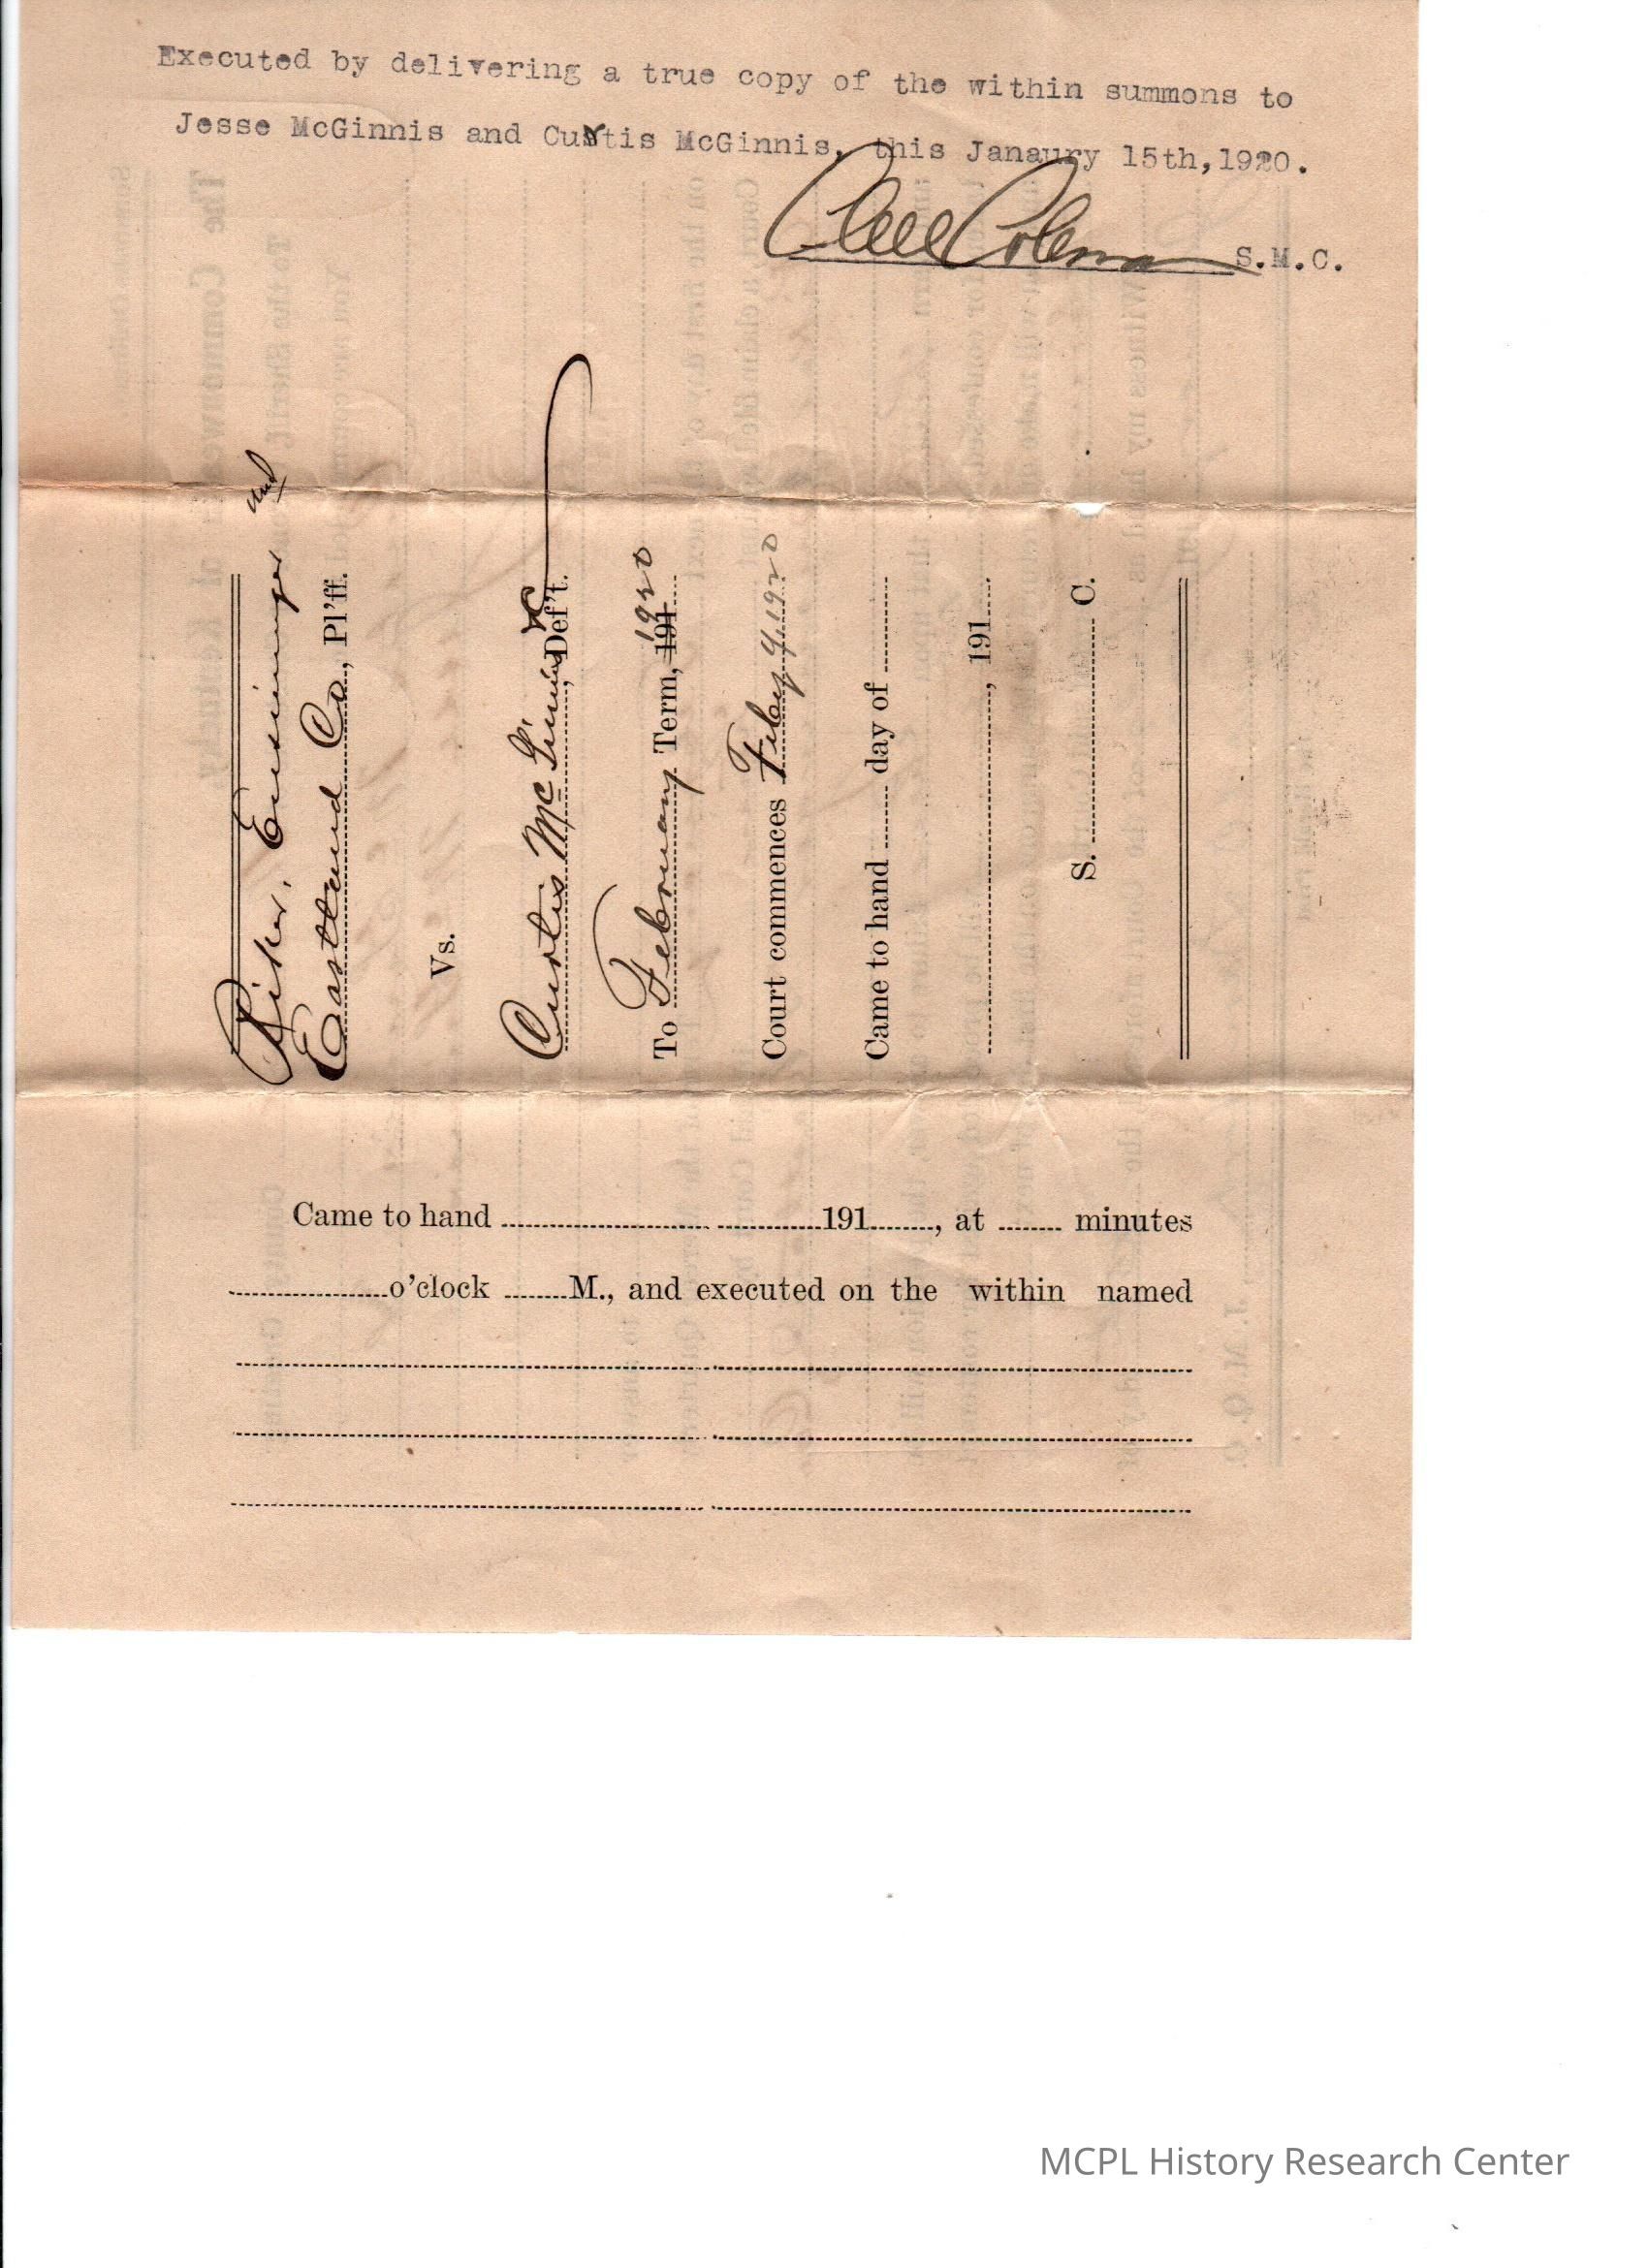 Executed by delivering a true copy of the within summons to
Jesse McGinnis and Curtis McGinnis, this Janaury 15th, 1920.
Clell Coleman S.M.C.
and
Riker, Ensminger
Eastland Co., Pl'ff.
Vs.
Curtis McGinnis &c, Def't.
To February Term, 191 1920
Court commences Feby 9, 1920
Came to hand ........ day of ........
........, 191....
S. ........ C.
Came to hand ........ 191........, at ........ minutes
........o'clock ........M., and executed on the within named
MCPL History Research Center